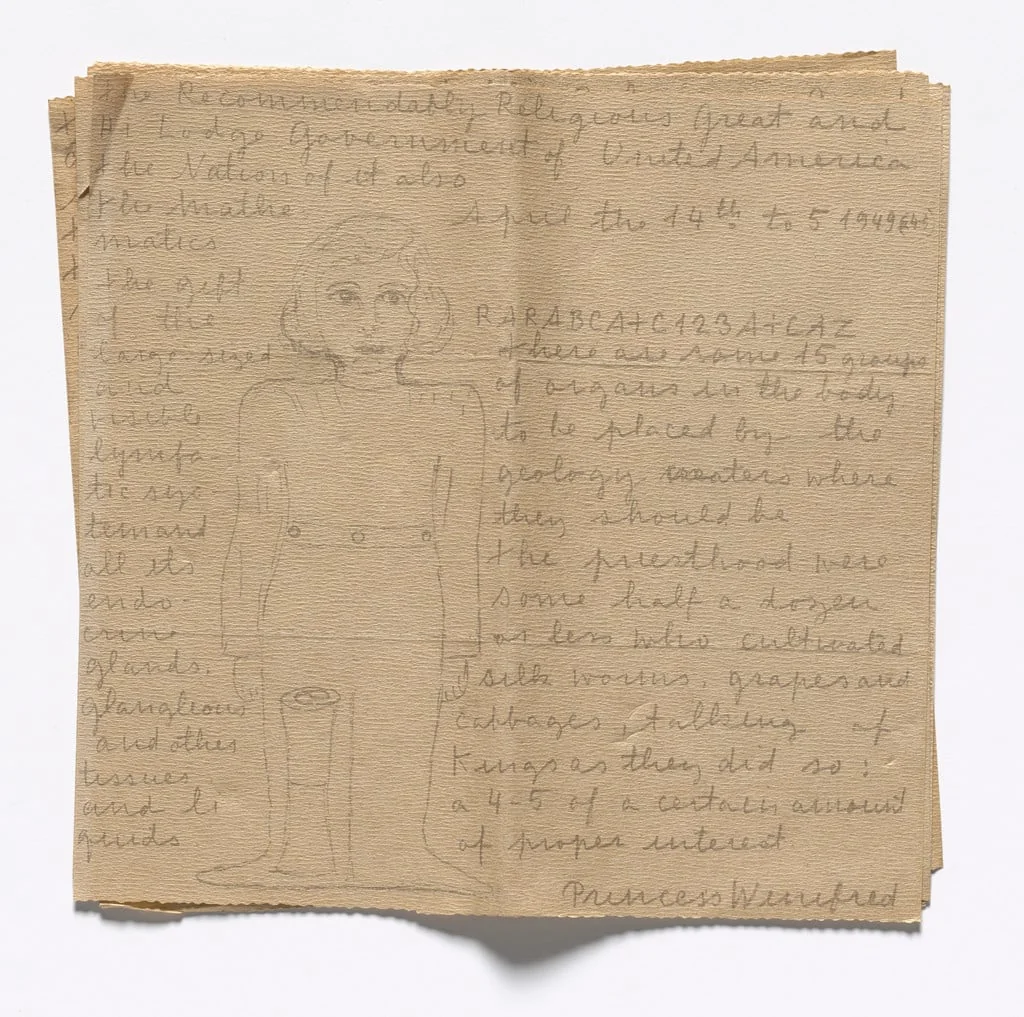 the Recommendably Religious Great and
Hi Lodge Government of United America
the Nation of it also
the mathe
matics
April the 14th to 5 1949
the geft
of the
large sized
and
visible
lymfa-
tic sys-
temand
all its
endo-
crine
glands.
glangleous
and other
tissues
and li
quids
RARABCA+C123A+CAZ
there are some 15 groups
of organs in the body
to be placed by the
geology where
they should be
the priesthood were
some half a dozen
or less who cultivated
silk worms, grapes and
cabbages, talking of
Kings as they did so:
a 4-5 of a certain amount
of proper interest
Princess Winifred